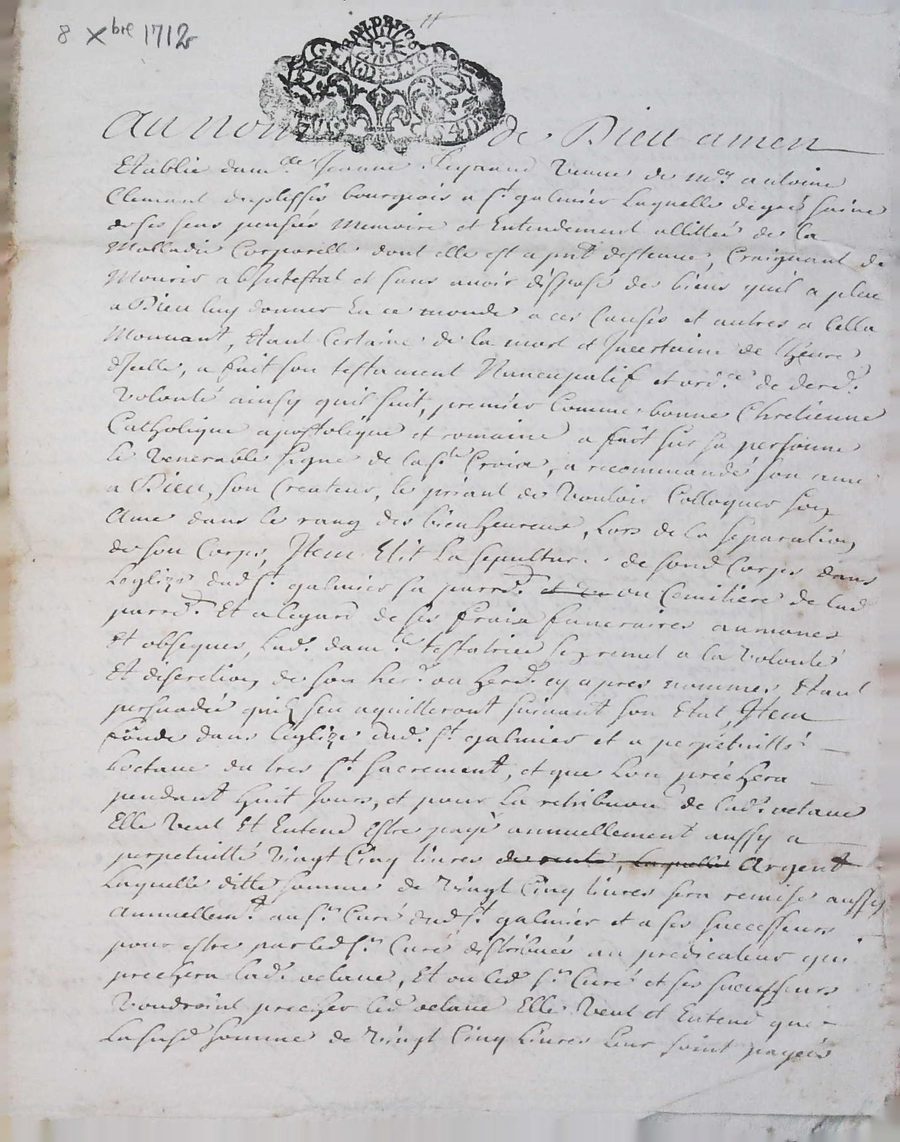 8 Xbre 1712
GEN DE LYON
Au nom de Dieu amen
Etablie dam.lle Jeanne Reynaud veuve de m.re antoine
Clement duplessis bourgeois a st galmier Laquelle de gré saine
de ses sens pensées memoire et Entendement allittée de la
Malladie Corporelle dont elle est a pnt destenue, Craignant de
Mourir abIntestat et sans avoir disposé des biens quil a plut
a Dieu luy donner En ce monde a ces causes et autres a cella
Mouvant, Etant Certaine de la mort et Incertaine de lheure
dIcelle, a fait son testament Nuncupatif et ord.ce de dere.
volonté ainsy quil suit, premier Comme bonne Chretienne
Catholique apostolique et romaine a fait sur sa personne
le venerable signe de la ste Croix, a recommandé son ame
a Dieu, son Createur, le priant de vouloir Colloquer son
Ame dans le rang des bienheureux, Lors de la separation
de son Corps, Item Elit La sepulture de sond Corps dans
Leglize dud st galmier sa parro. et au Cemitiere de lad
parro. Et a legard de ses fraix funeraires aumones
Et obseques, Lad. dam.lle testatrice se remet a la volonté
Et discretion de son her. ou herd. cy apres nommés Etant
persuadée quilz sen aquitteront suivant son Etat Item
fonde dans leglize dud. st galmier et a perpetuitté
Loctave du tres st sacrement, et que Lon préchera
pendant huit Jours, et pour La retribuon de lad. octave
Elle veut Et Entend Estre payé annuellement aussy a
perpetuitté vingt Cinq livres de rente, laquelle Argent
Laquelle ditte somme de vingt Cinq livres sera remise aussy
annuellemt au sr. Curé dud st galmier et a ses successeurs
pour estre par led sr. Curé distribuée au predicateur qui
prechera lad. octave, Et ou led sr. Curé et ses successeurs
voudroint precher led octave Elle veut et Entend que
La susd somme de vingt Cinq livres Leur soint payées